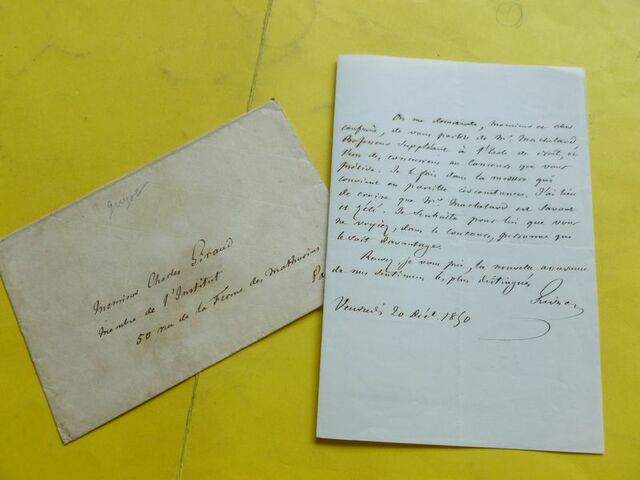 guizot
Monsieur Charles Giraud
Membre de l'Institut
50 rue de la Ferme des Mathurins
Pa
On me demande, Monsieur et cher
confrère, de vous parler de Mr. Machelard
Professeur suppléant à l'Ecole de droit, et
l'un des concurrens au Concours que vous
présidez. Je le fais dans la mesure qui
convient en pareille circonstance. J'ai lieu
de croire que Mr. Machelard est savant
et zélé. Je souhaite pour lui que vous
ne voyiez, dans le concours, personne qui
le soit davantage.
Recevez, je vous prie, la nouvelle assurance
de mes sentimens les plus distingués
Guizot
Vendredi 20 Déc. 1850